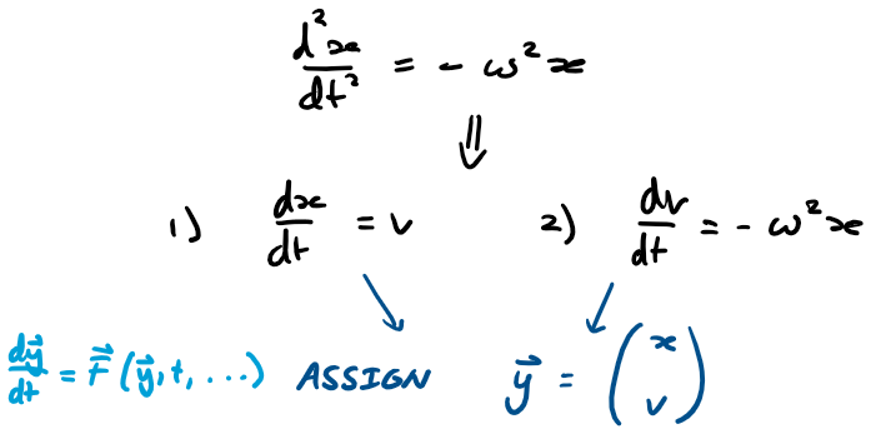 d²x/dt² = - ω²x
⇓
1) dx/dt = v 2) dv/dt = - ω²x
dy⃗/dt = F⃗(y⃗, t, ...) ASSIGN y⃗ = (x
v)